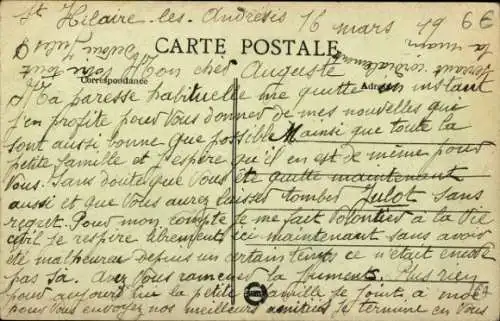 St Hilaire-les-Andrésis 16 mars 19 6€
CARTE POSTALE
Correspondance
Adresse
Mon cher Auguste
Ma paresse habituelle me quitte un instant
j'en profite pour vous donner de mes nouvelles qui
sont aussi bonne que possible ainsi que toute la
petite famille et j'espère qu'il en est de même pour
vous. Sans doute que vous été quitte maintenant
aussi et que vous aurez laisser tomber Julot sans
regret. Pour mon compte je me fait volontiers à la vie
civil je respire librement ici maintenant sans avoir
été malheureux depuis un certain temps ce n'était encore
pas sa. Avez vous ramener la Plus rien
pour aujourd'hui que la petite famille se joint à moi
pour vous envoyez nos meilleurs amitiés je termine en vous
serrant cordialement
la main
votre tout
Julot